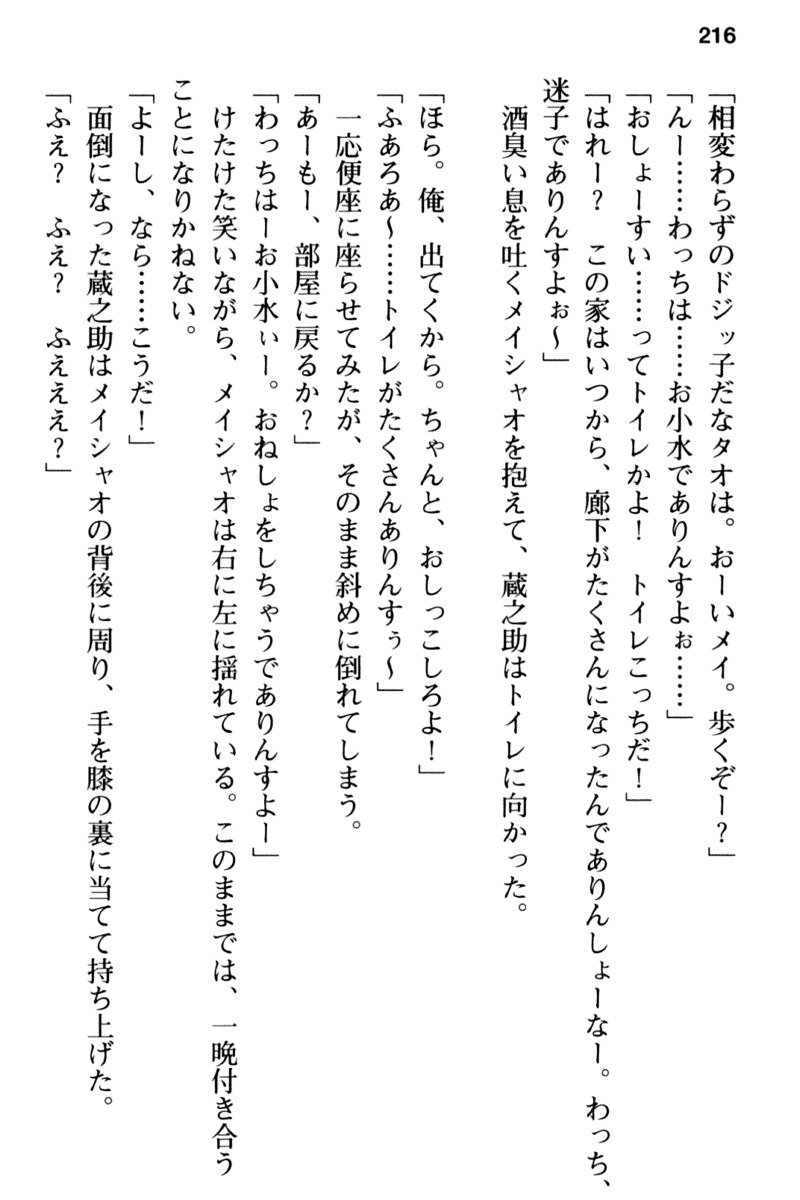 216
「相変わらずのドジッ子だなタオは。おーいメイ。歩くぞー？」
「んー……わっちは……お小水でありんすよぉ……」
「おしょーすい……ってトイレかよ！　トイレこっちだ！」
「はれー？　この家はいつから、廊下がたくさんになったんでありんしょーなー。わっち、
迷子でありんすよぉ〜」
酒臭い息を吐くメイシャオを抱えて、蔵之助はトイレに向かった。
「ほら。俺、出てくから。ちゃんと、おしっこしろよ！」
「ふあろあ〜……トイレがたくさんありんすぅ〜」
一応便座に座らせてみたが、そのまま斜めに倒れてしまう。
「あーもー、部屋に戻るか？」
「わっちはーお小水ぃー。おねしょをしちゃうでありんすよー」
けたけた笑いながら、メイシャオは右に左に揺れている。このままでは、一晩付き合う
ことになりかねない。
「よーし、なら……こうだ！」
面倒になった蔵之助はメイシャオの背後に周り、手を膝の裏に当てて持ち上げた。
「ふえ？　ふえ？　ふえええ？」